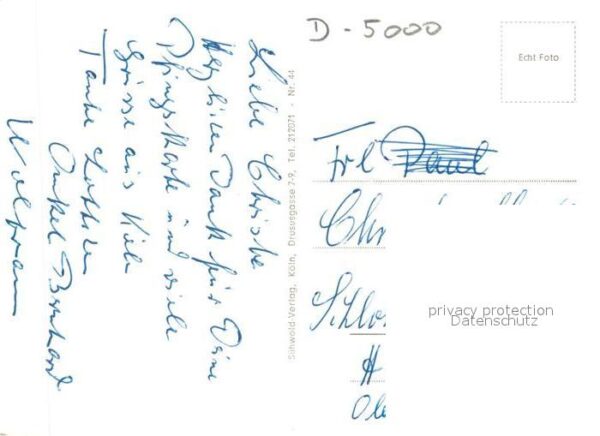 Liebe Christe
Herzlichen Dank für Deine
Pfingstkarte und viele
Grüsse aus Köln
Tante
Onkel Bernhard
Wolfram
Sünwold-Verlag, Köln, Drususgasse 7-9, Tel. 212071 - Nr. 44
D - 5000
Echt Foto
Frl Paul
Chr
Schlo
privacy protection
Datenschutz
H
Ole